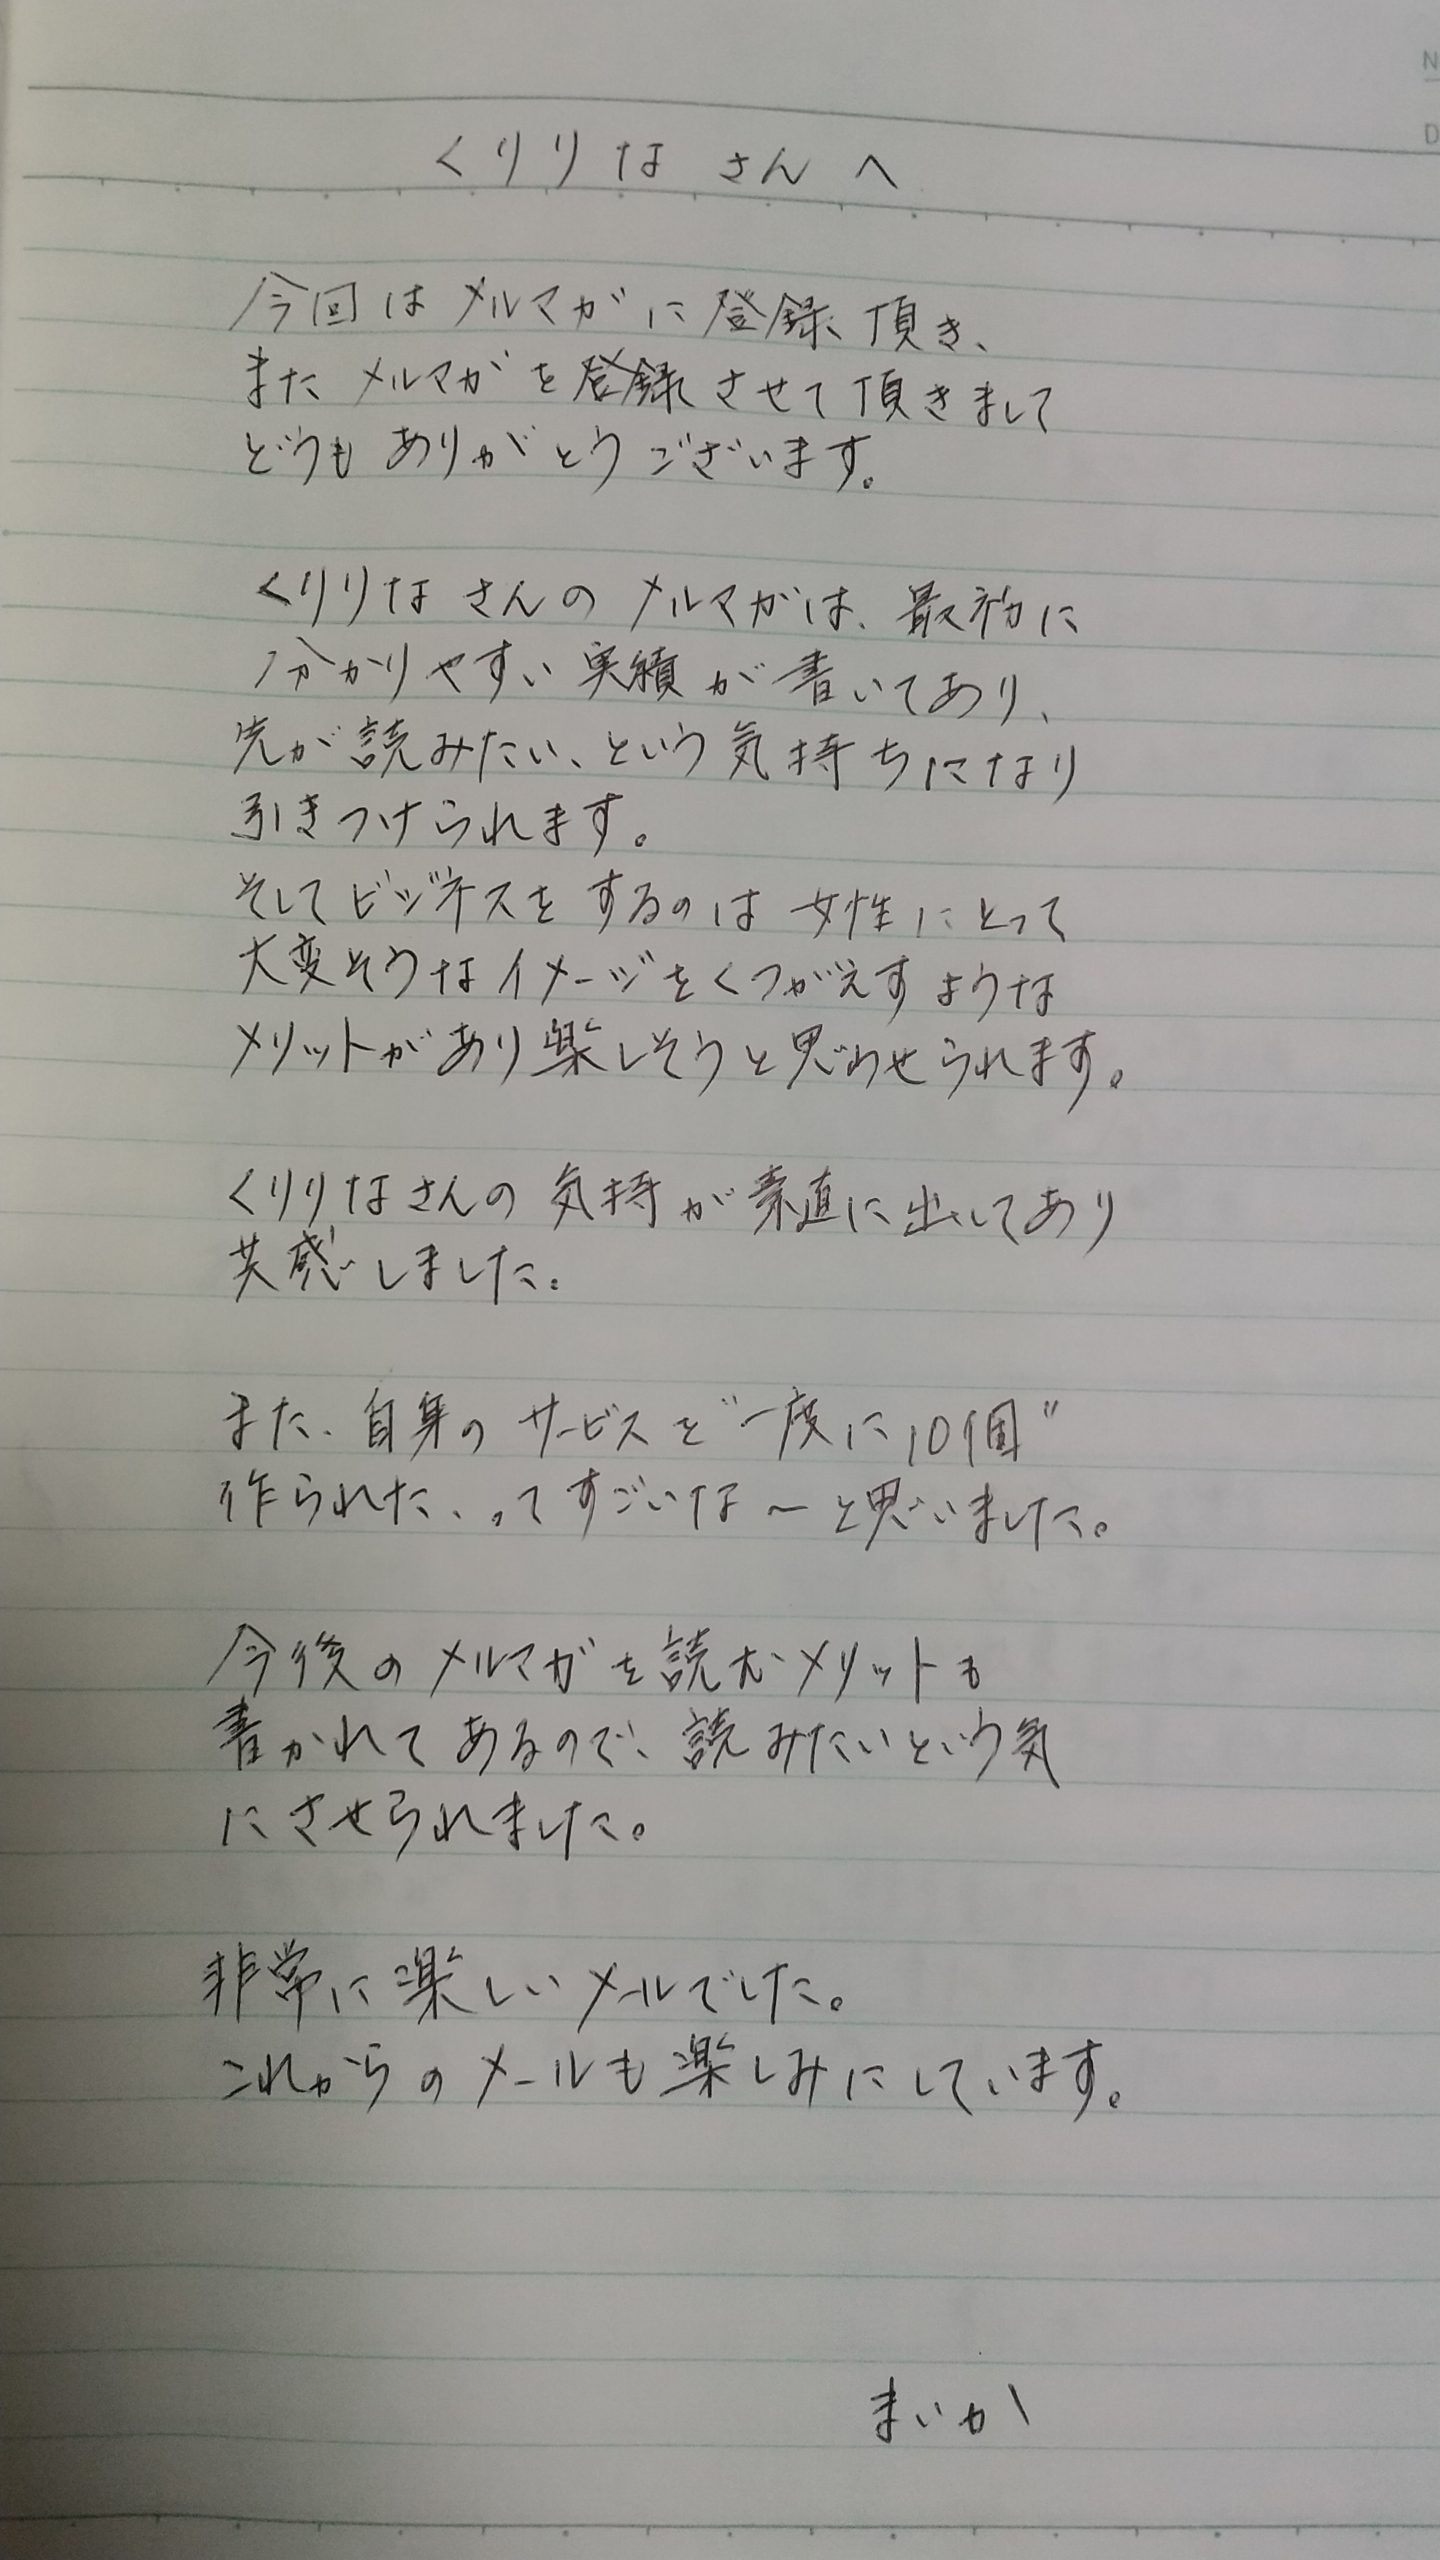 N
D
くりりな さんへ
今回はメルマガに登録頂き、
またメルマガを登録させて頂きまして
どうもありがとうございます。
くりりなさんのメルマガは、最初に
分かりやすい実績が書いてあり、
先が読みたい、という気持ちになり
引きつけられます。
そしてビジネスをするのは女性にとって
大変そうなイメージをくつがえすような
メリットがあり楽しそうと思わせられます。
くりりなさんの気持が素直に出してあり
共感しました。
また、自身のサービスを"一度に10個"
作られた、ってすごいな〜と思いました。
今後のメルマガを読むメリットも
書かれてあるので、読みたいという気
にさせられました。
非常に楽しいメールでした。
これからのメールも楽しみにしています。
まいか